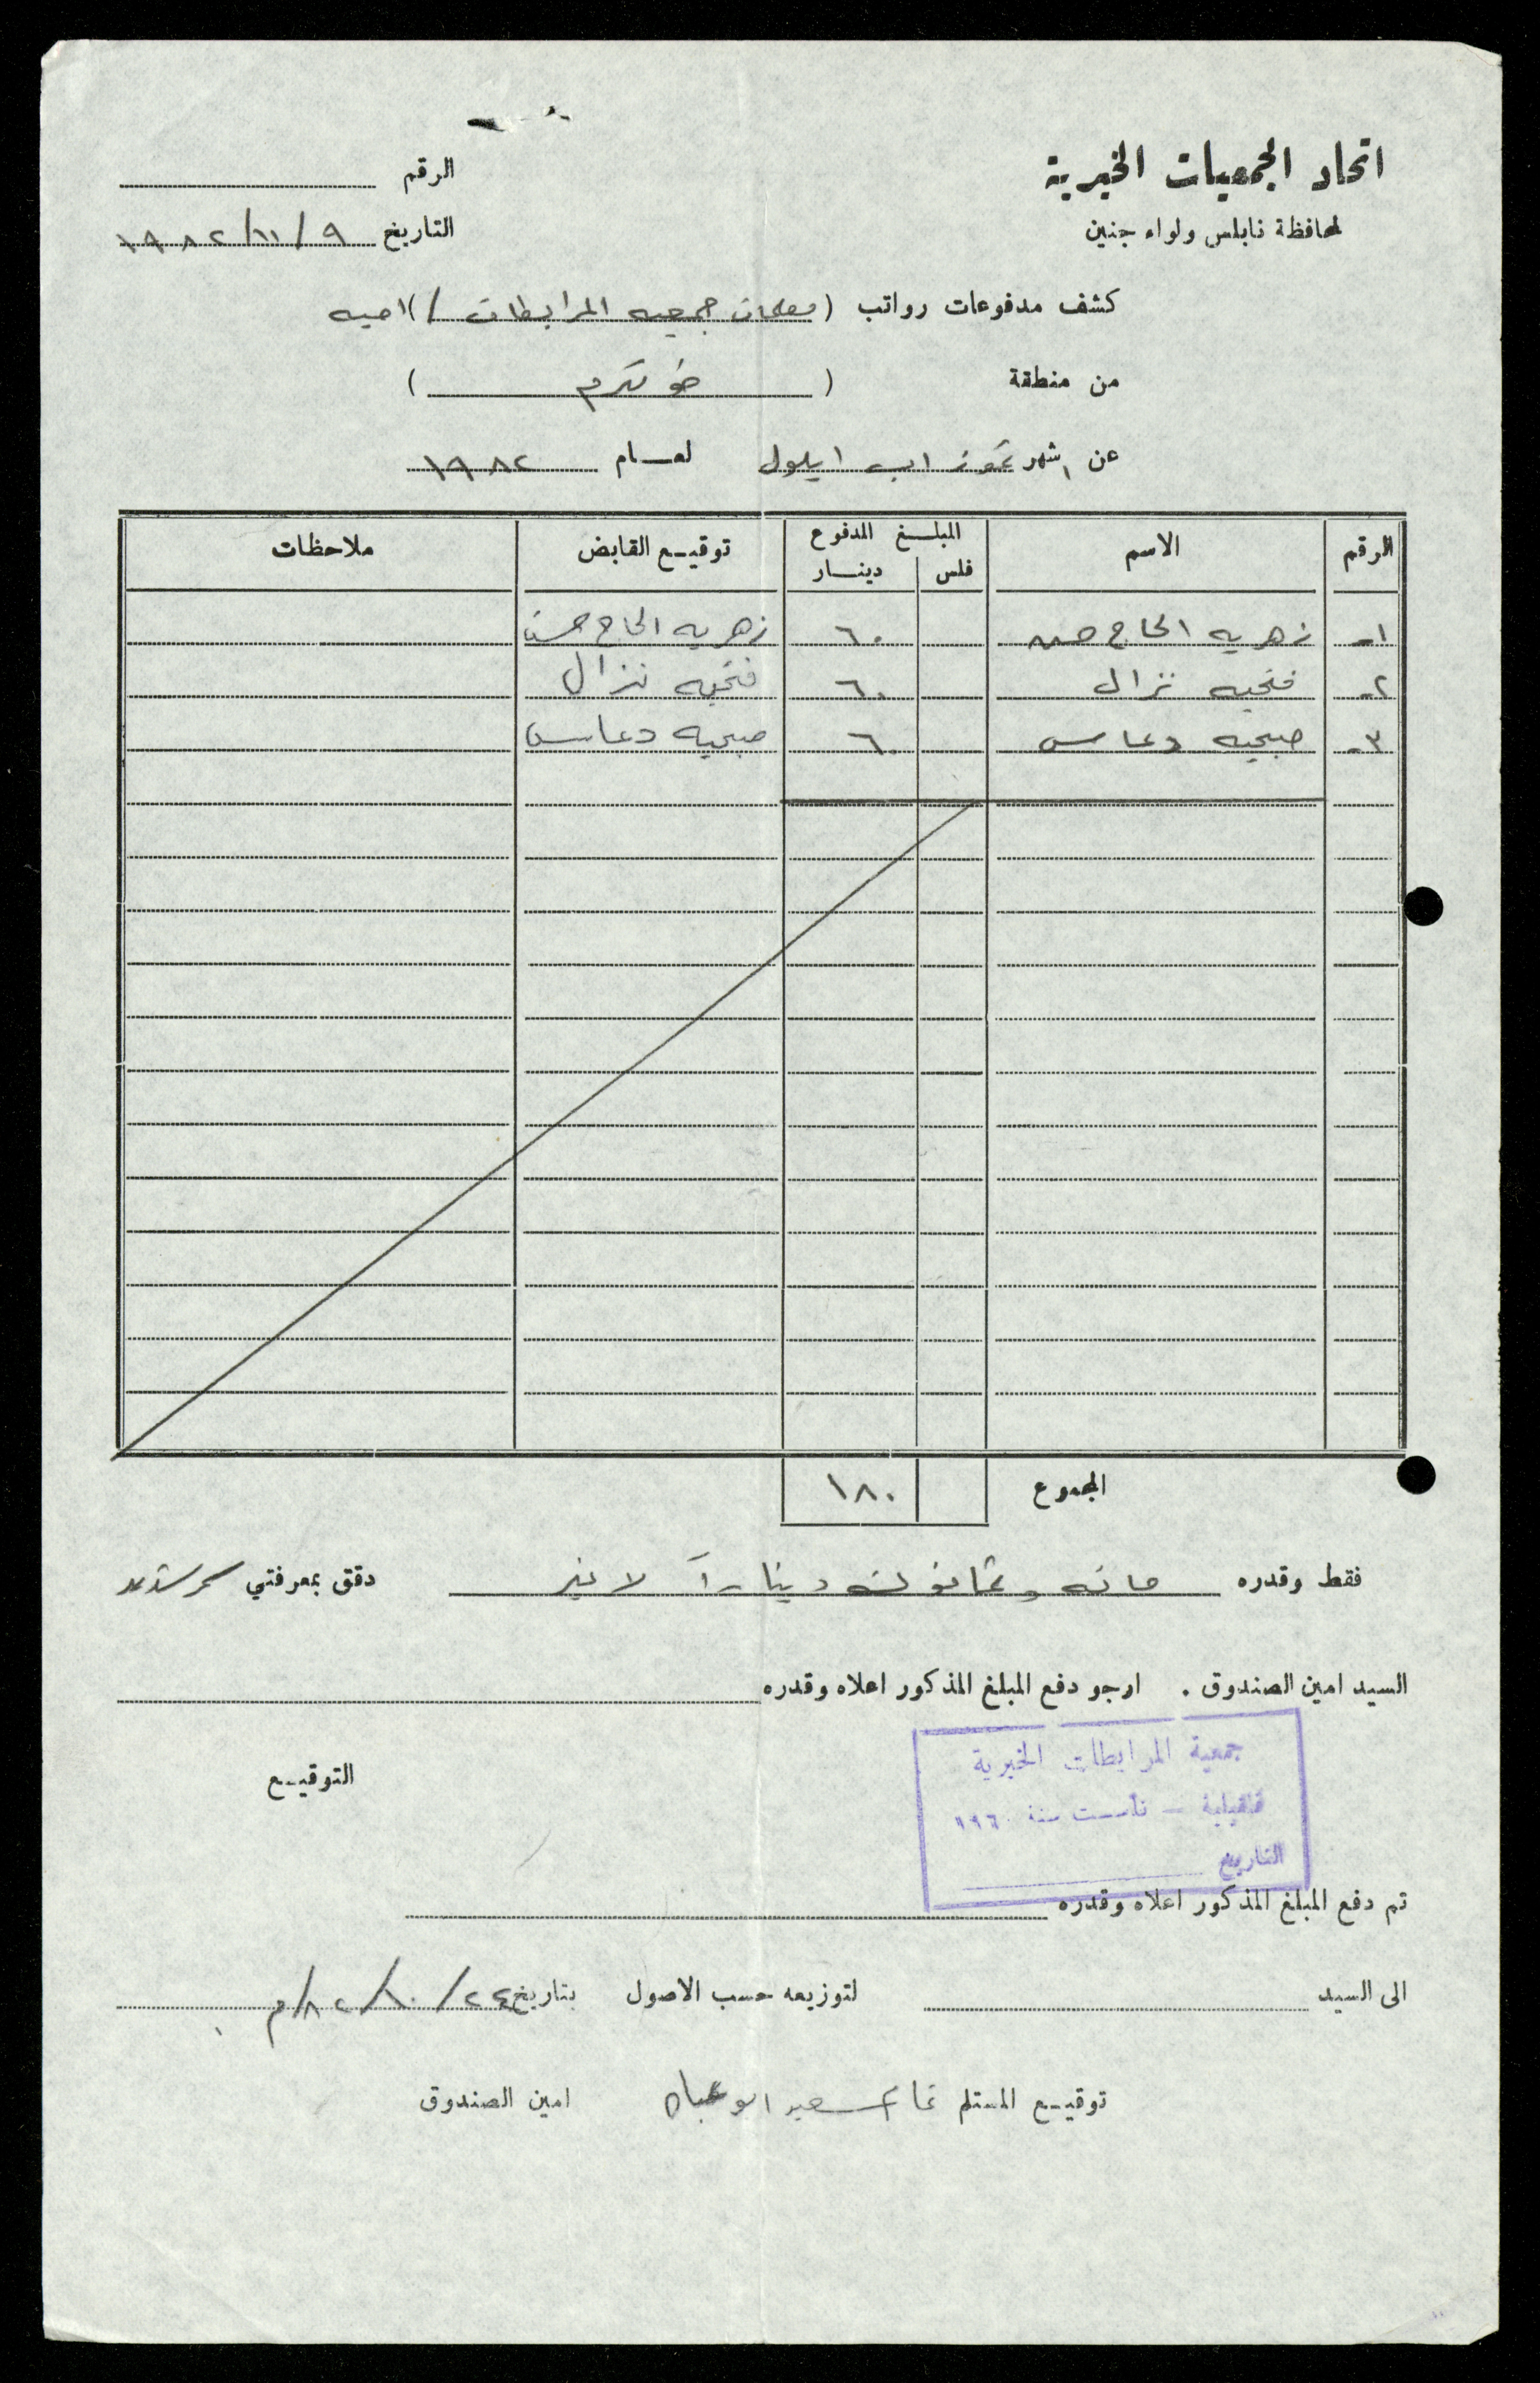 اتحاد الجمعيات الخيرية
لمحافظة نابلس ولواء جنين
الرقم
التاريخ ٩/١١/١٩٨٢
كشف مدفوعات رواتب (معلمات جمعيه المرابطات /) اميه
من منطقة ( طولكرم )
عن اشهر تموز اب ايلول لعــام ١٩٨٢
الرقم الاسم المبلــغ المدفوع توقيـع القابض ملاحظات
فلس دينــار
١- زهريه الحاج حسن ٦٠ زهريه الحاج حسن
٢- فتحيه نزال ٦٠ فتحيه نزال
٣- صبحيه دعاس ٦٠ صبحيه دعاس
المجموع ١٨٠
فقط وقدره مائه وثمانون دينارآ لا غير دقق بمعرفتي
السيد امين الصندوق . ارجو دفع المبلغ المذكور اعلاه وقدره
جمعية المرابطات الخيرية
قلقيلية - تأسست سنة ١٩٦٠
التاريخ
التوقيـع
تم دفع المبلغ المذكور اعلاه وقدره
الى السيد لتوزيعه حسب الاصول بتاريخ ٢٤/١٠/٨٢م
توقيـع المستلم سعيد ابو امين الصندوق